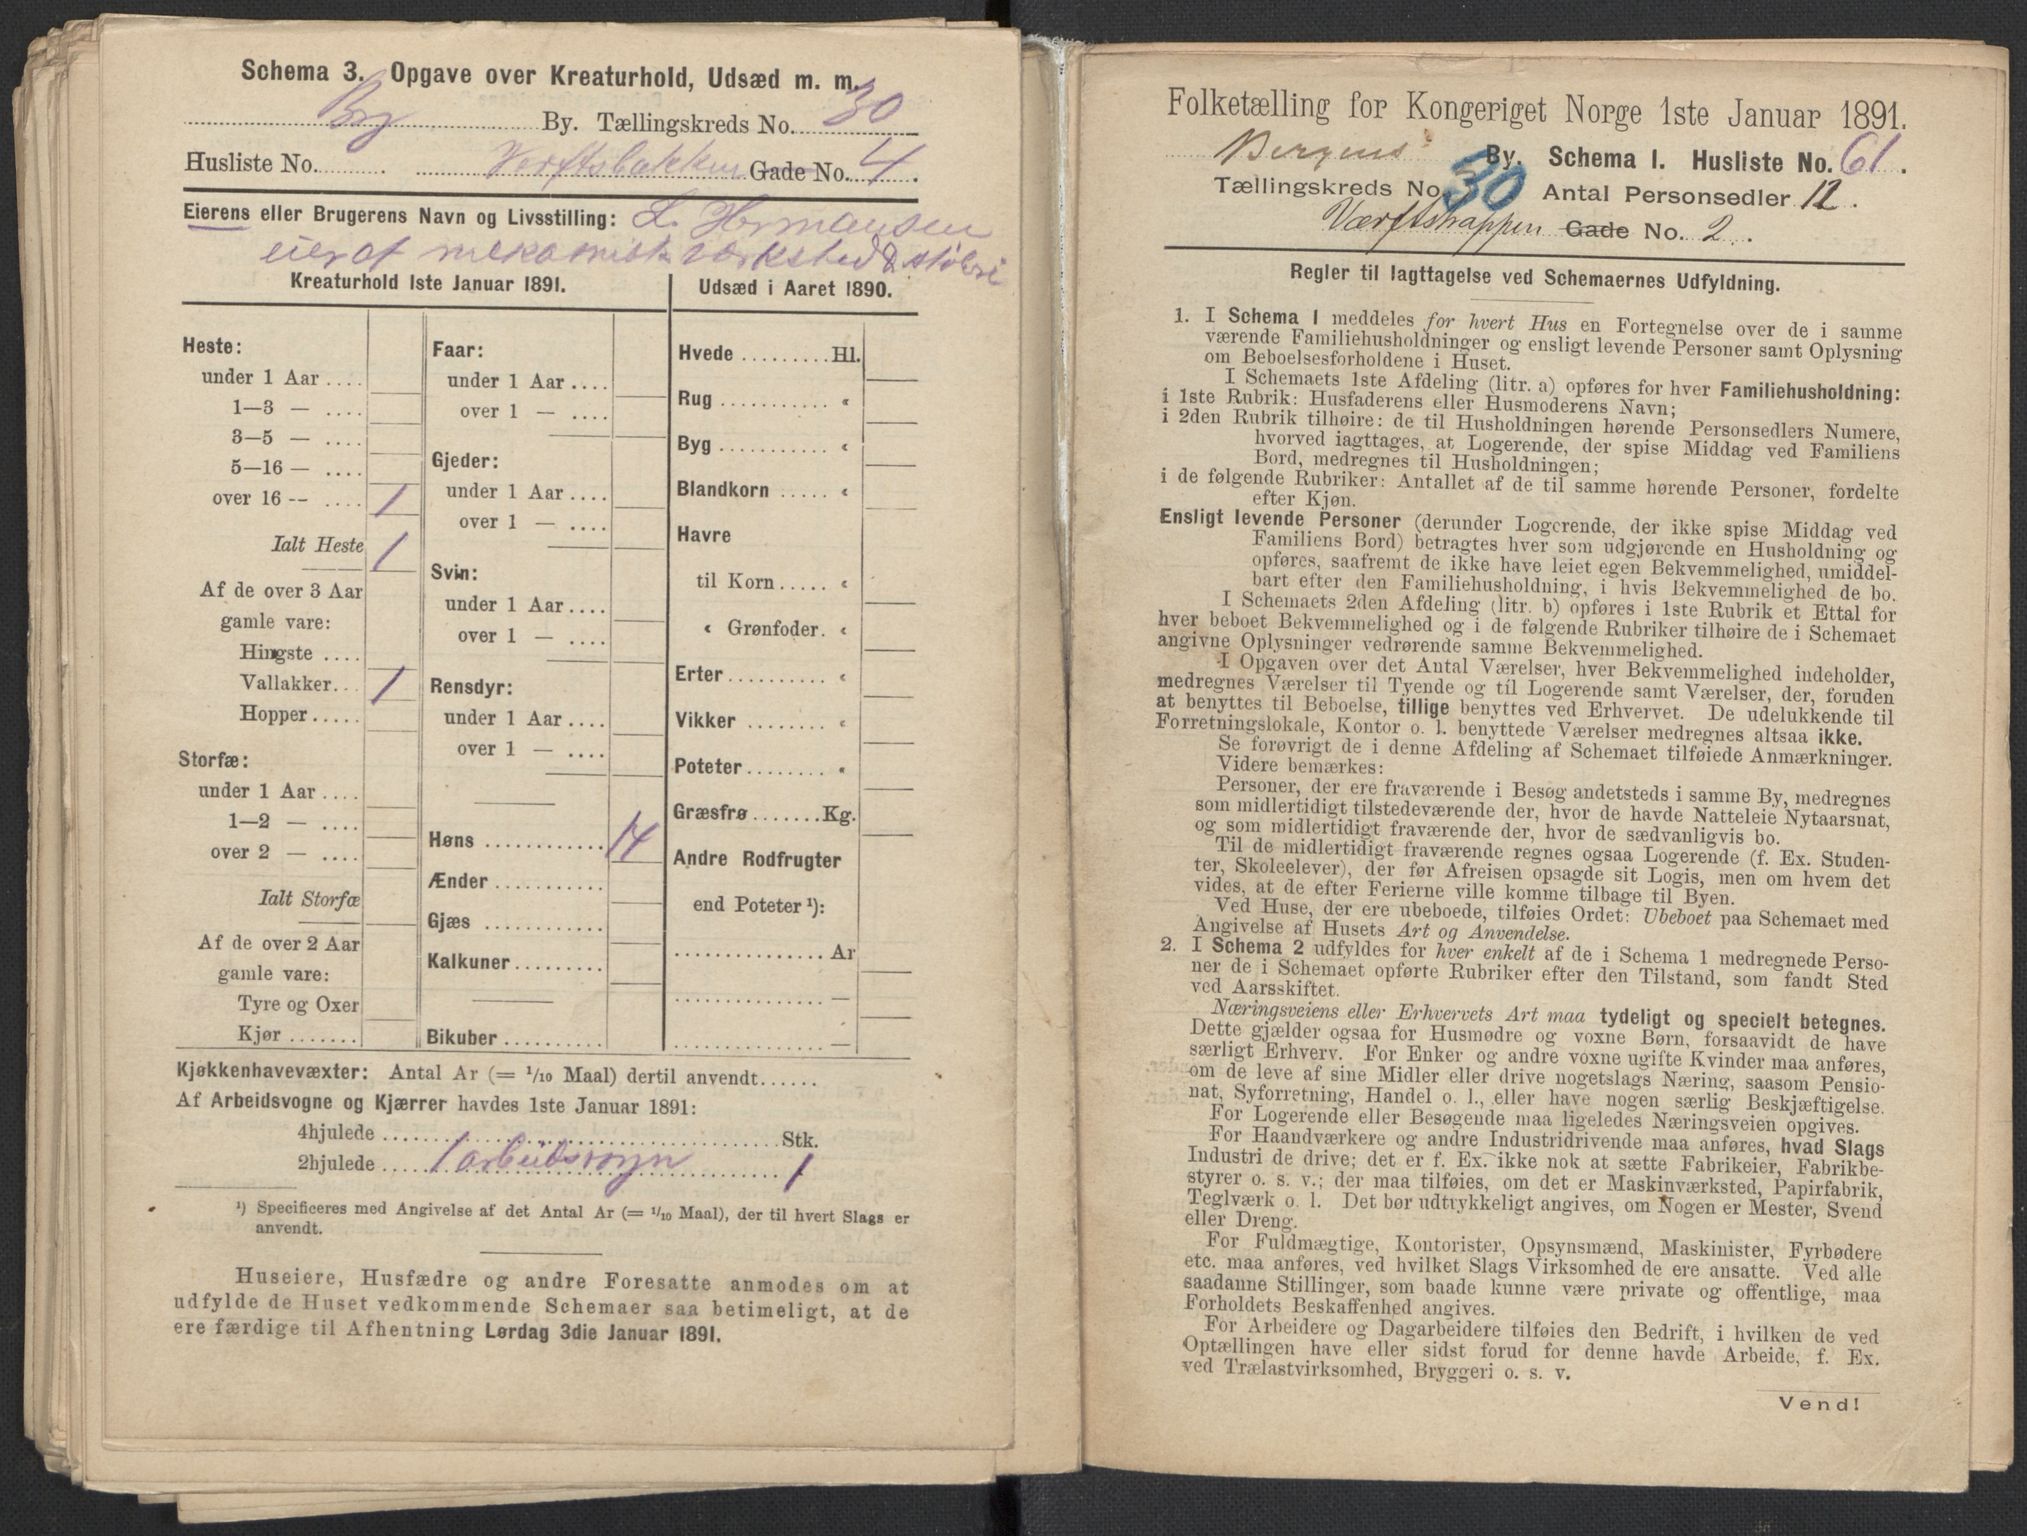 Schema 3. Opgave over Kreaturhold, Udsæd m. m.
By. Tællingskreds No. 30
Husliste No. Verftsbakken Gade No. 4.
Eierens eller Brugerens Navn og Livsstilling: L. Hermansen
eier af mekanisk værksted & støberi
Kreaturhold 1ste Januar 1891.
Heste:
under 1 Aar ....
1—3 — ....
3—5 — ....
5—16 — ....
over 16 -- .... 1
Ialt Heste 1
Af de over 3 Aar
gamle vare:
Hingste ....
Vallakker... 1
Hopper.....
Storfæ:
under 1 Aar ....
1—2 — ....
over 2 — ....
Ialt Storfæ
Af de over 2 Aar
gamle vare:
Tyre og Oxer
Kjør .......
Faar:
under 1 Aar ....
over 1 — ....
Gjeder:
under 1 Aar ....
over 1 — ....
Svin:
under 1 Aar ....
over 1 — ....
Rensdyr:
under 1 Aar ....
over 1 — ....
Høns ............ 14
Ænder ...........
Gjæs ............
Kalkuner.........
Bikuber ..........
Udsæd i Aaret 1890.
Hvede .........Hl.
Rug ........... «
Byg ........... «
Blandkorn ..... «
Havre
til Korn..... «
« Grønfoder. «
Erter .......... «
Vikker ........ «
Poteter........ «
Græsfrø .......Kg.
Andre Rodfrugter
end Poteter ¹):
...............Ar
...............—
...............—
Kjøkkenhavevæxter: Antal Ar (= 1/10 Maal) dertil anvendt......
Af Arbeidsvogne og Kjærrer havdes 1ste Januar 1891:
4hjulede ........................................Stk.
2hjulede ..... 1 arbeidsvogn 1
¹) Specificeres med Angivelse af det Antal Ar (= 1/10 Maal), der til hvert Slags er
anvendt.
Huseiere, Husfædre og andre Foresatte anmodes om at
udfylde de Huset vedkommende Schemaer saa betimeligt, at de
ere færdige til Afhentning Lørdag 3die Januar 1891.
Folketælling for Kongeriget Norge 1ste Januar 1891.
Bergens By. Schema 1. Husliste No. 61.
Tællingskreds No. 30 Antal Personsedler 12.
Værftstrappen Gade No. 2.
Regler til Iagttagelse ved Schemaernes Udfyldning.
1. I Schema 1 meddeles for hvert Hus en Fortegnelse over de i samme
værende Familiehusholdninger og ensligt levende Personer samt Oplysning
om Beboelsesforholdene i Huset.
I Schemaets 1ste Afdeling (litr. a) opføres for hver Familiehusholdning:
i 1ste Rubrik: Husfaderens eller Husmoderens Navn;
i 2den Rubrik tilhøire: de til Husholdningen hørende Personsedlers Numere,
hvorved iagttages, at Logerende, der spise Middag ved Familiens
Bord, medregnes til Husholdningen;
i de følgende Rubriker: Antallet af de til samme hørende Personer, fordelte
efter Kjøn.
Ensligt levende Personer (derunder Logerende, der ikke spise Middag ved
Familiens Bord) betragtes hver som udgjørende en Husholdning og
opføres, saafremt de ikke have leiet egen Bekvemmelighed, umiddel-
bart efter den Familiehusholdning, i hvis Bekvemmelighed de bo.
I Schemaets 2den Afdeling (litr. b) opføres i 1ste Rubrik et Ettal for
hver beboet Bekvemmelighed og i de følgende Rubriker tilhøire de i Schemaet
angivne Oplysninger vedrørende samme Bekvemmelighed.
I Opgaven over det Antal Værelser, hver Bekvemmelighed indeholder,
medregnes Værelser til Tyende og til Logerende samt Værelser, der, foruden
at benyttes til Beboelse, tillige benyttes ved Erhvervet. De udelukkende til
Forretningslokale, Kontor o. l. benyttede Værelser medregnes altsaa ikke.
Se forøvrigt de i denne Afdeling af Schemaet tilføiede Anmærkninger.
Videre bemærkes:
Personer, der ere fraværende i Besøg andetsteds i samme By, medregnes
som midlertidigt tilstedeværende der, hvor de havde Natteleie Nytaarsnat,
og som midlertidigt fraværende der, hvor de sædvanligvis bo.
Til de midlertidigt fraværende regnes ogsaa Logerende (f. Ex. Studen-
ter, Skoleelever), der før Afreisen opsagde sit Logis, men om hvem det
vides, at de efter Ferierne ville komme tilbage til Byen.
Ved Huse, der ere ubeboede, tilføies Ordet: Ubeboet paa Schemaet med
Angivelse af Husets Art og Anvendelse.
2. I Schema 2 udfyldes for hver enkelt af de i Schema 1 medregnede Perso-
ner de i Schemaet opførte Rubriker efter den Tilstand, som fandt Sted
ved Aarsskiftet.
Næringsveiens eller Erhvervets Art maa tydeligt og specielt betegnes.
Dette gjælder ogsaa for Husmødre og voxne Børn, forsaavidt de have
særligt Erhverv. For Enker og andre voxne ugifte Kvinder maa anføres,
om de leve af sine Midler eller drive nogetslags Næring, saasom Pensio-
nat, Syforretning, Handel o. l., eller have nogen særlig Beskjæftigelse.
For Logerende eller Besøgende maa ligeledes Næringsveien opgives.
For Haandværkere og andre Industridrivende maa anføres, hvad Slags
Industri de drive; det er f. Ex. ikke nok at sætte Fabrikeier, Fabrikbe-
styrer o. s. v.; der maa tilføies, om det er Maskinværksted, Papirfabrik,
Teglværk o. l. Det bør udtrykkeligt angives, om Nogen er Mester, Svend
eller Dreng.
For Fuldmægtige, Kontorister, Opsynsmænd, Maskinister, Fyrbødere
etc. maa anføres, ved hvilket Slags Virksomhed de ere ansatte. Ved alle
saadanne Stillinger, som baade kunne være private og offentlige, maa
Forholdets Beskaffenhed angives.
For Arbeidere og Dagarbeidere tilføies den Bedrift, i hvilken de ved
Optællingen have eller sidst forud for denne havde Arbeide, f. Ex.
ved Trælastvirksomhed, Bryggeri o. s. v.
Vend!